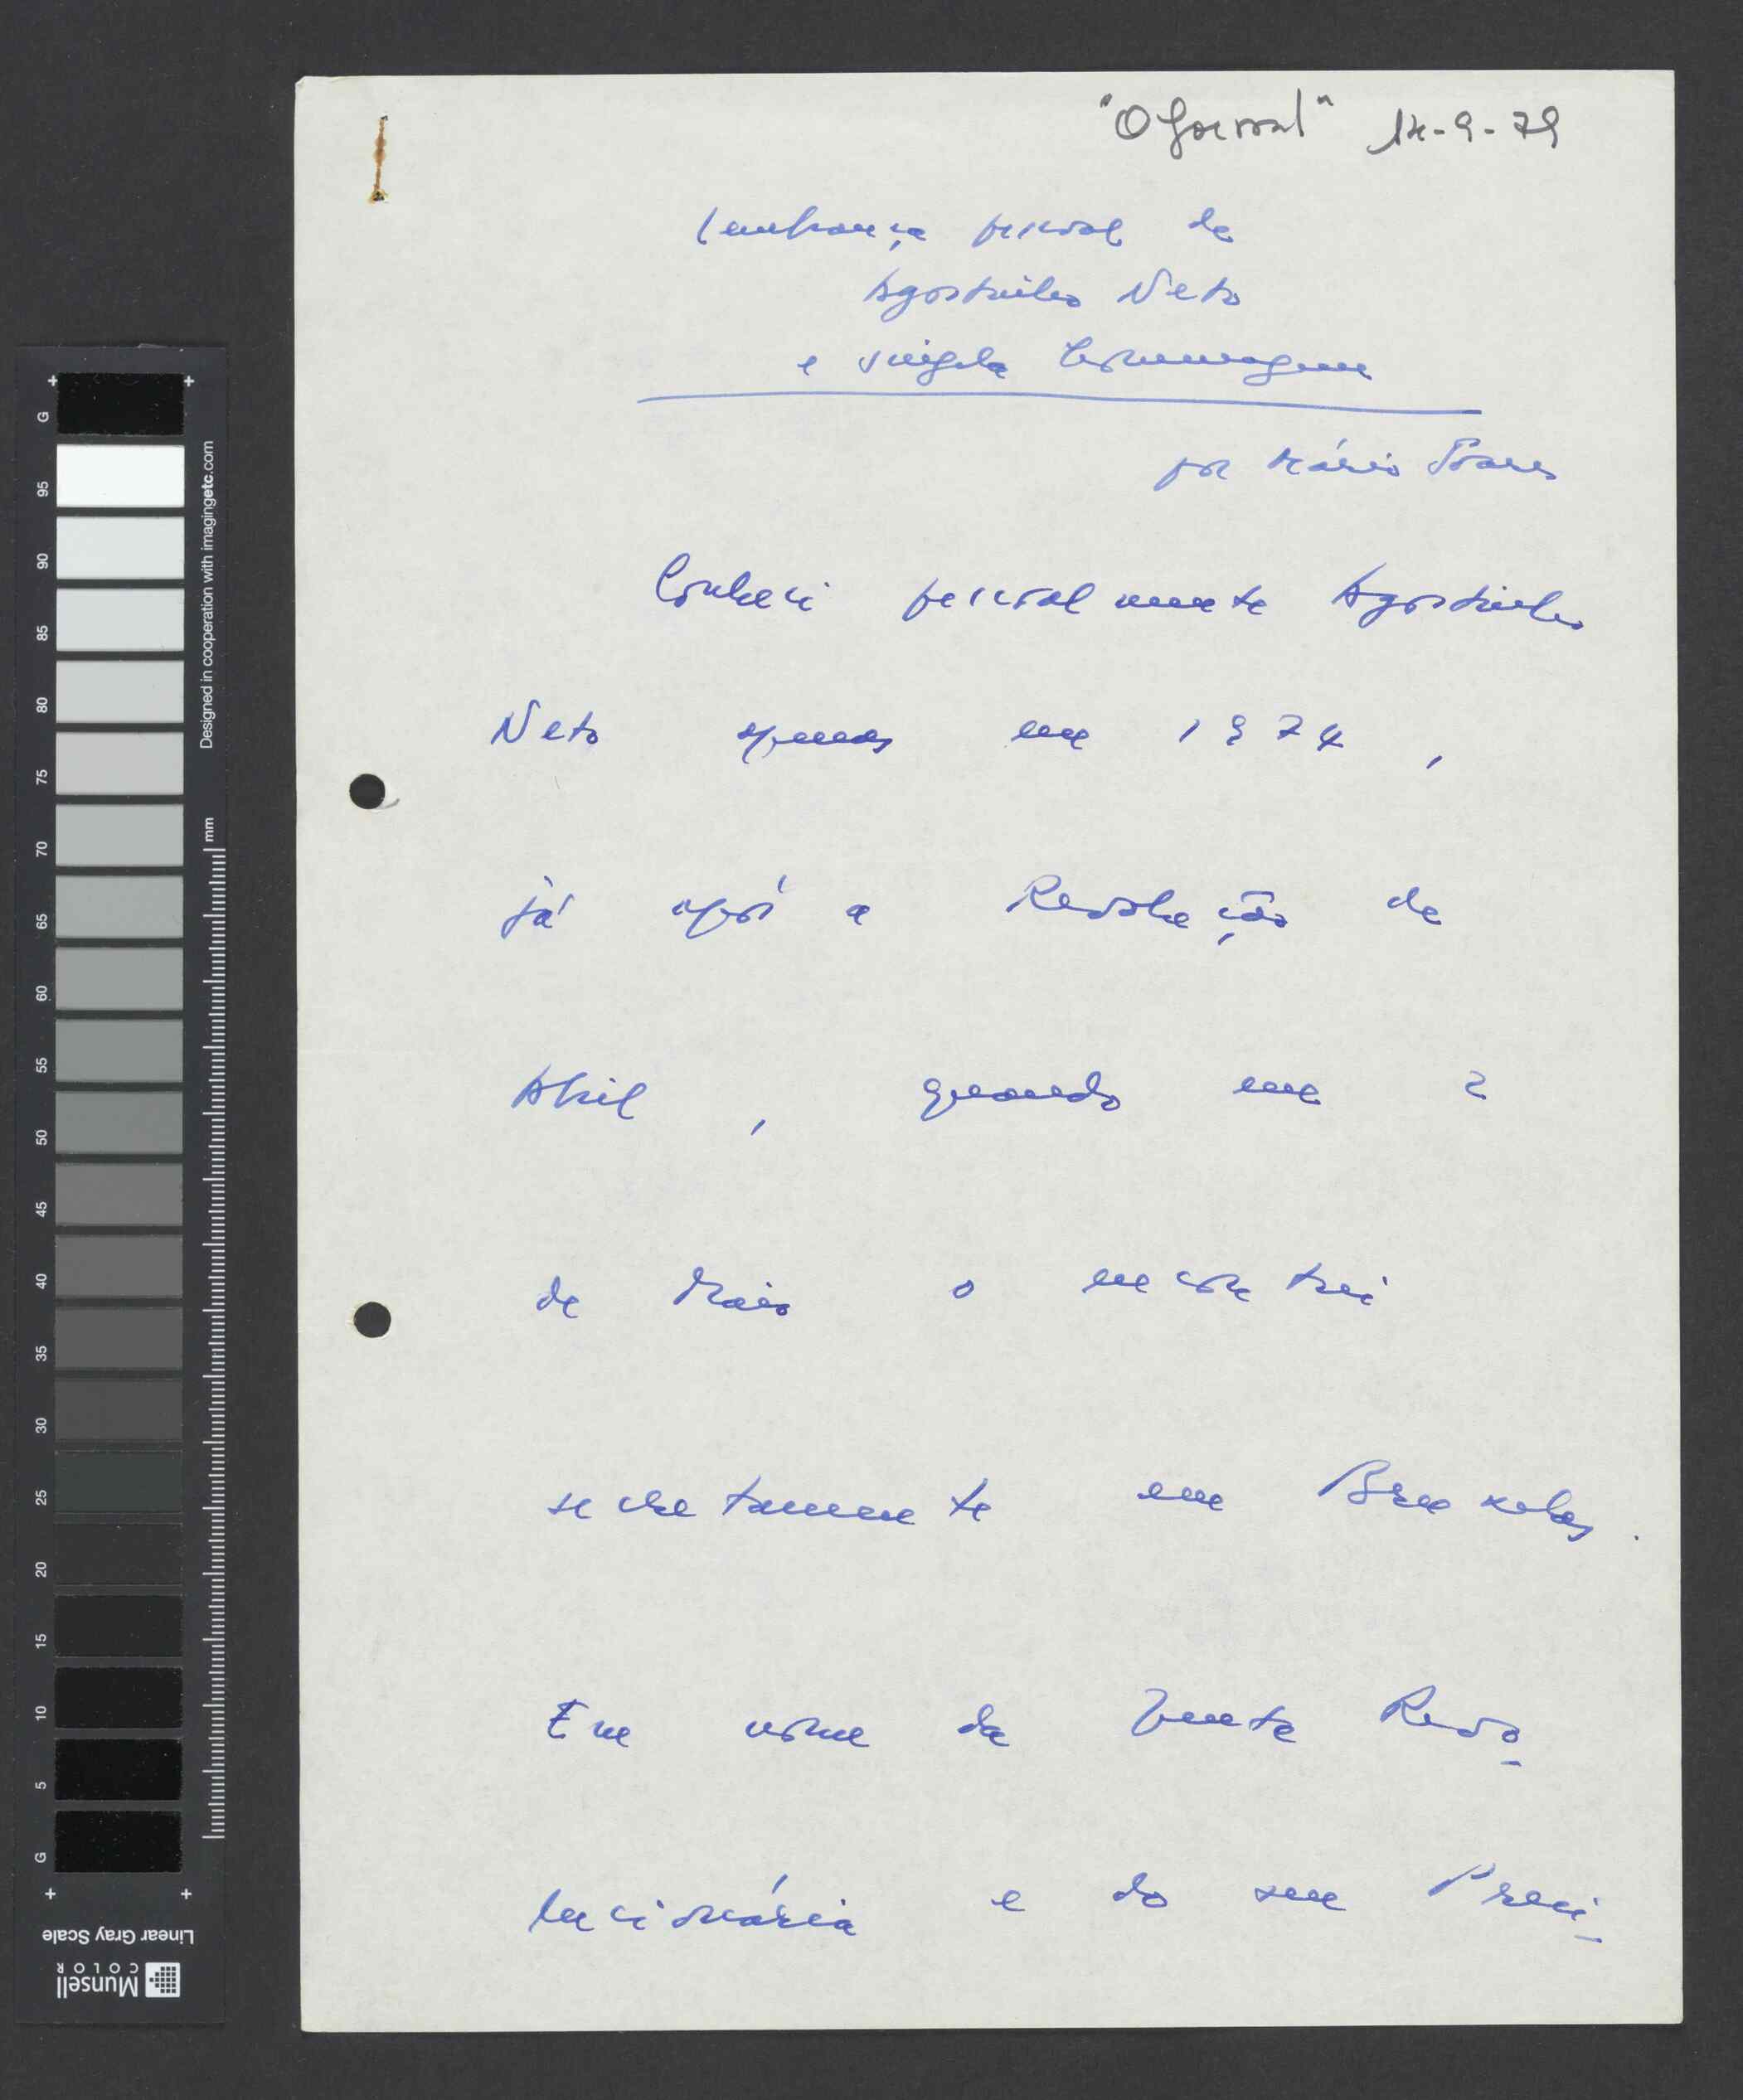 "O Jornal" 14-9-79
Lembrança pessoal de
Agostinho Neto
e singela homenagem
por Mário Soares
Conheci pessoalmente Agostinho
Neto apenas em 1974,
já após a Revolução de
Abril, quando em 2
de Maio o encontrei
secretamente em Bruxelas.
Em nome da Junta Revo-
lucionária e do seu Presi-
G
95
90
85
80
75
70
65
60
55
50
45
40
35
30
25
20
15
10
5
G
Designed in cooperation with imagingetc.com
mm
Linear Gray Scale
Munsell
COLOR